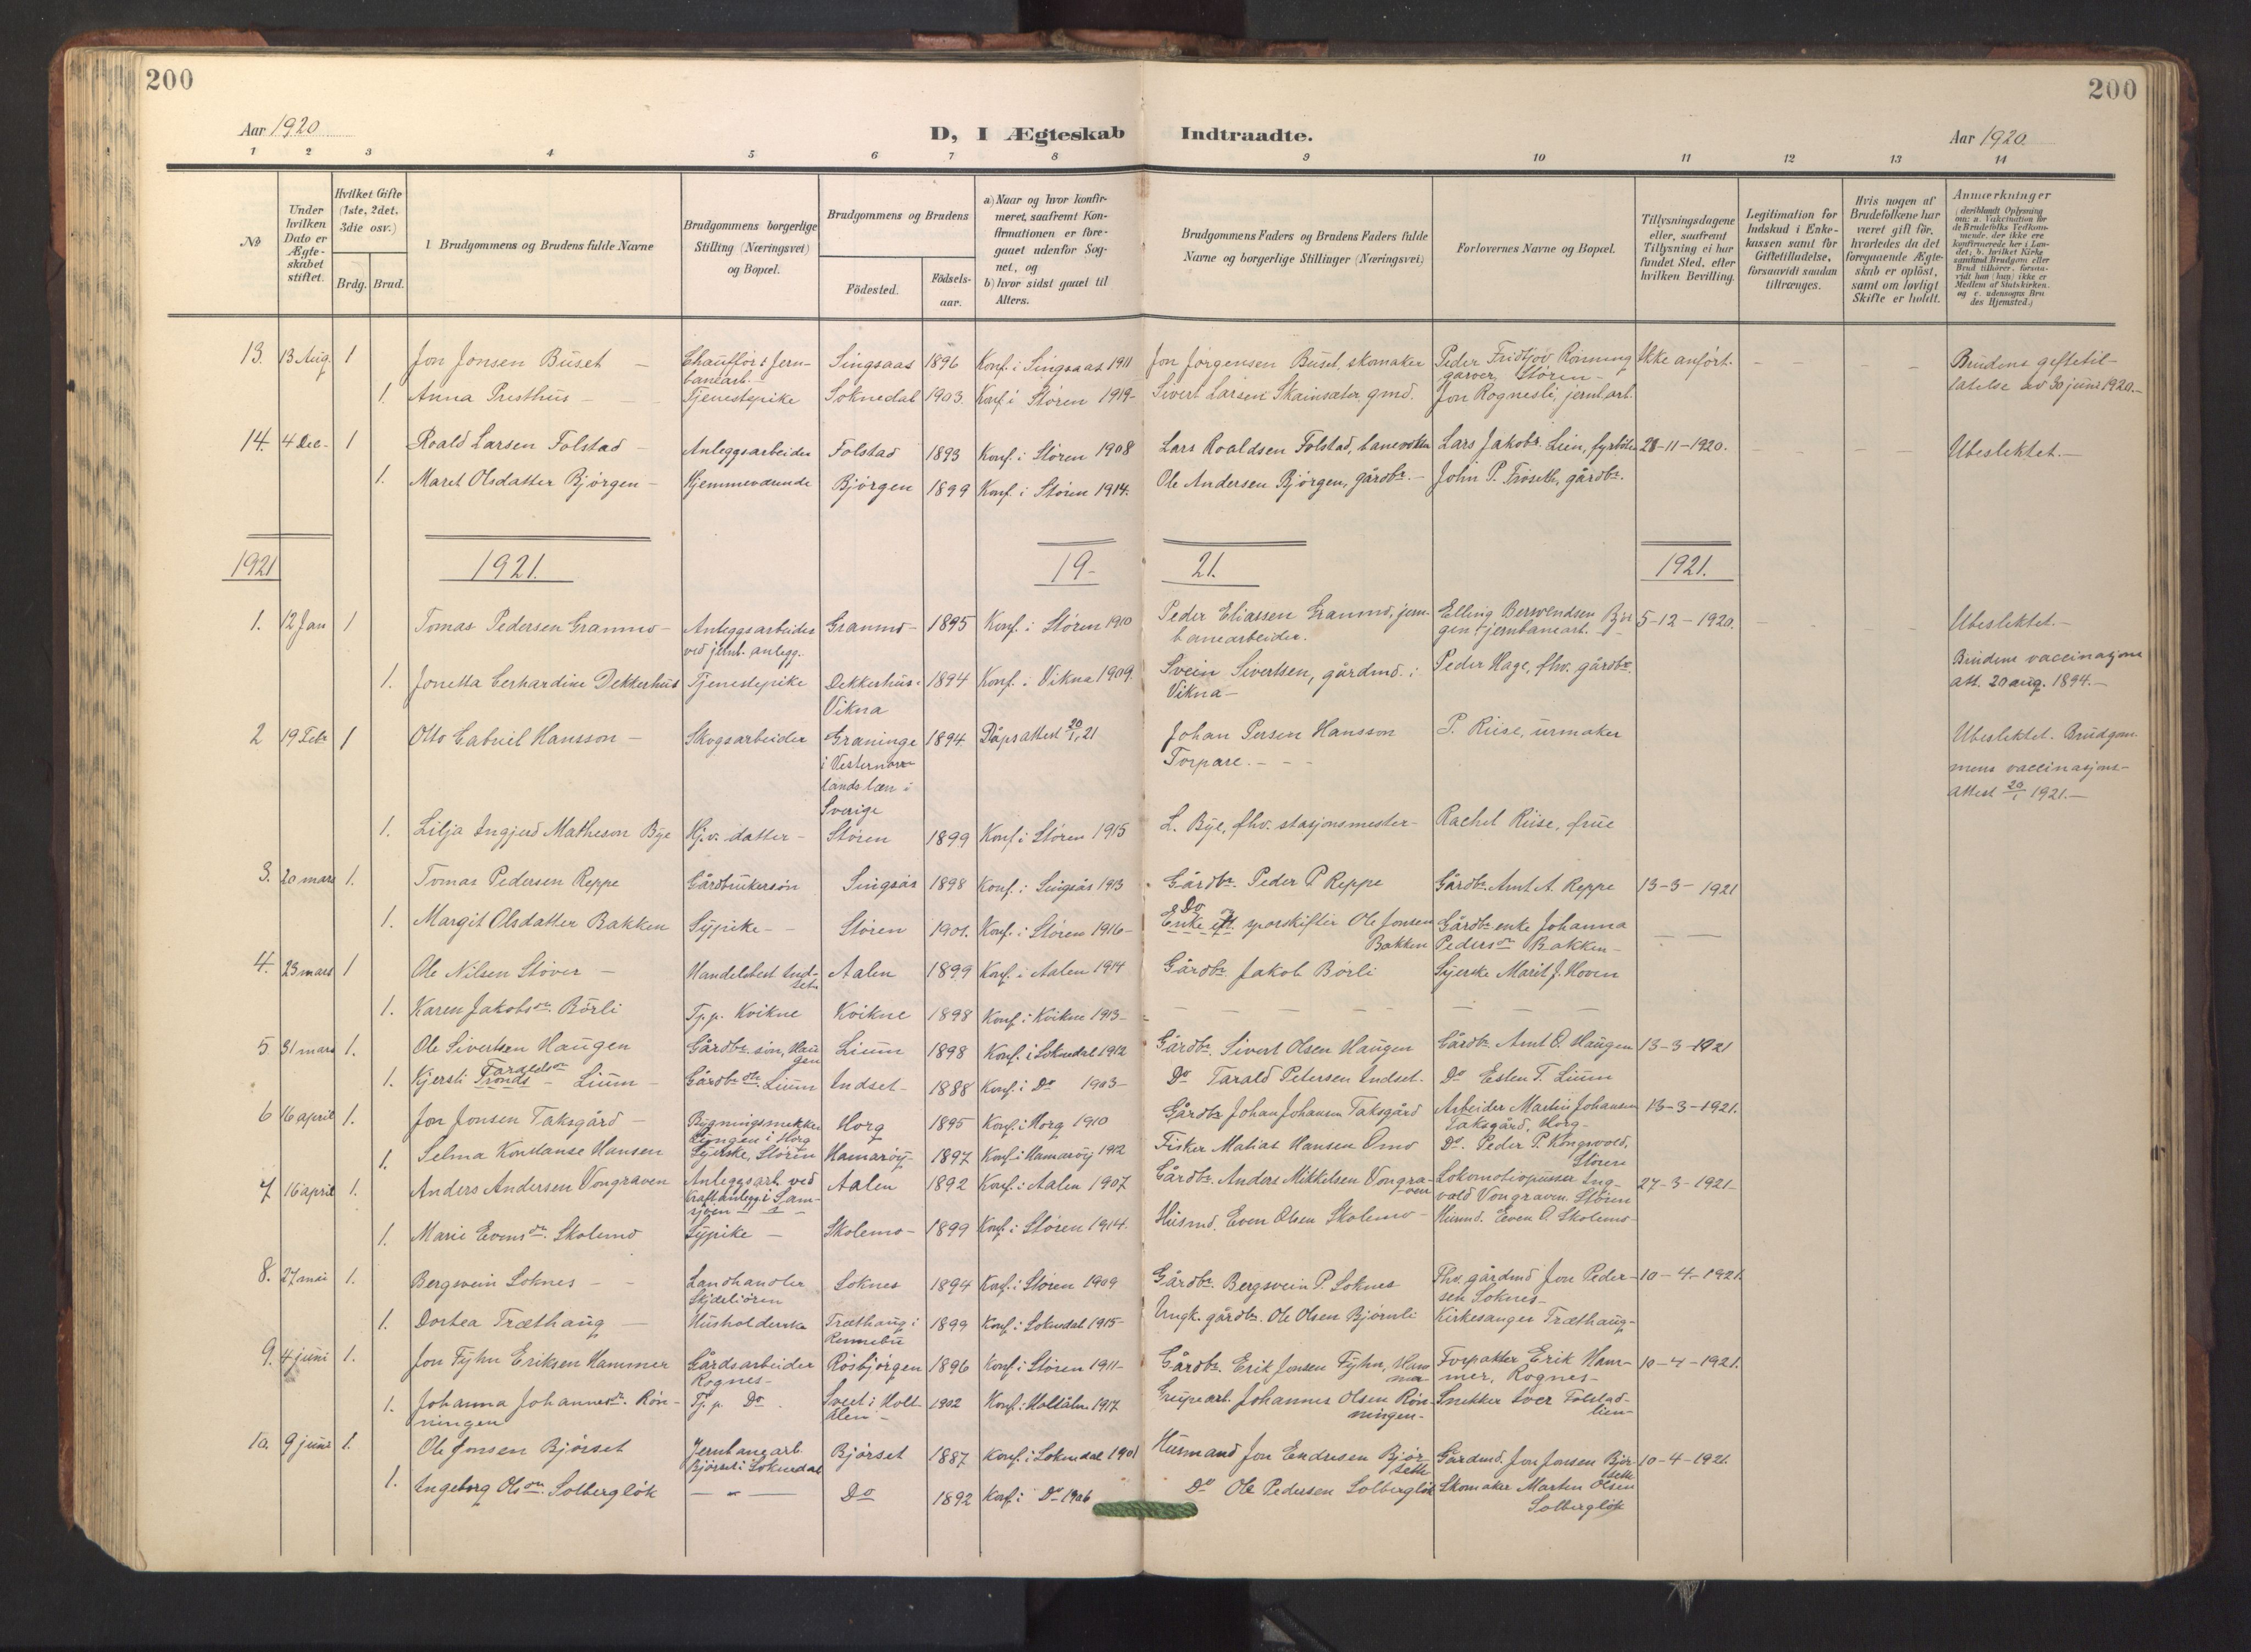 200
200
Aar 1920
D, I Ægteskab Indtraadte.
Aar 1920
1 2 3 4 5 6 7 8 9 10 11 12 13 14
No
Under hvilken Dato er Ægteskabet stiftet.
Hvilket Gifte (1ste, 2det, 3die osv.)
Brdg. Brud.
Brudgommens og Brudens fulde Navne
Brudgommens borgerlige Stilling (Næringsvei) og Bopæl.
Brudgommens og Brudens
Födested.
Födselsaar.
a) Naar og hvor konfirmeret, saafremt Konfirmationen er foregaaet udenfor Sognet, og
b) hvor sidst gaaet til Alters.
Brudgommens Faders og Brudens Faders fulde Navne og borgerlige Stillinger (Næringsvei)
Forlovernes Navne og Bopæl.
Tillysningsdagene eller, saafremt Tillysning ei har fundet Sted, efter hvilken Bevilling.
Legitimation for Indskud i Enkekassen samt for Giftetilladelse, forsaavidt saadan tiltrænges.
Hvis nogen af Brudefolkene har været gift før, hvorledes da det foregaaende Ægteskab er oplöst, samt om lovligt Skifte er holdt.
Anmærkninger
13. 13 Aug. 1 Jon Jonsen Buset – Chauffør & Jernbanearb. Singsaas 1896 Konf. i Singsaas 1911 Jon Jørgensen Buset, skomaker Peder Fridtjov Rønning garver, Støren – Ikke anført. – – – Brudens giftetillatelse av 30 juni 1920. –
1. Anna Presthus – Tjenestepike Soknedal 1903. Konf. i Støren 1919 – Sivert Larsen Skainsæter, gmd. Jon Rognesli, jernb.arb.
14. 4 Dec. 1 Roald Larsen Folstad – Anleggsarbeider Folstad 1893 Konf. i Støren 1908 Lars Roaldsen Folstad, banevokter Lars Jakobs. Lien, fyrbøter 28–11–1920. – – – Ubeslektet. –
1. Maret Olsdatter Bjørgen – Hjemmeværende Bjørgen 1899 Konf. i Støren 1914. Ole Andersen Bjørgen, gårdbr. – John P. Frøseth, gårdbr.
1921 1921. 19– 21. 1921.
1. 12 Jan 1 Tomas Pedersen Granmo – Anleggsarbeider ved jernb. anlegg. Granmo – 1895 Konf. i Støren 1910 Peder Eliassen Granmo, jernbanearbeider. Elling Berwendsen Bjørgen, jernbanearb. 5–12–1920. – – – Ubeslektet. –
1. Jonetta Gerhardine Dekkerhus Tjenestepike Dekkerhus i Vikna 1894 Konf. i Vikna 1909. Svein Sivertsen, gårdmd. i Vikna – Peder Hage, fhv. gårdbr. Brudens vaccinasjons att. 20 aug. 1894. –
2 19 Febr 1 Otto Gabriel Hansson – Skogsarbeider Graninge i Vesternorrlands læn i Sverige 1894 Dåpsattest 20/1, 21 Johan Persen Hansson Torpare. – – – P. Riise, urmaker Ubeslektet. Brudgommens vaccinasjonsattest 20/1 1921. –
1. Lilja Ingjerd Matheson Bye Hj.v. datter – Støren 1899 Konf. i Støren 1915 L. Bye, fhv. stasjonsmester – Rachel Riise, frue
3. 20 mars 1. Tomas Pedersen Reppe Gårdbrukersøn Singsås 1898 Konf. i Singsås 1913 Gårdbr. Peder P. Reppe Gårdbr. Arnt A. Reppe 13–3–1921
1. Margit Olsdatter Bakken Sypike – – Støren 1901. Konf. i Støren 1916 – Do Enke eft. sporskifter Ole Jonsen Bakken Gårdbr. enke Johanna Pedersdr. Bakken – – –
4. 23 mars 1 Ole Nilsen Støver – Handelsbest. Indset. Aalen 1899 Konf. i Aalen 1914 Gårdbr. Jakob Børli Syerske Marit J. Hoven
1. Karen Jakobsdr. Børli Tj.p. Kvikne Kvikne 1898 Konf. i Kvikne 1913 – – – – – –
5 31 mars 1. Ole Sivertsen Haugen Gårdbr. søn, Haugen Lium 1898 Konf. i Soknedal 1912 Gårdbr. Sivert Olsen Haugen Gårdbr. Arnt O. Haugen 13–3–1921
1. Kjersti Taraldsdr Tronds – Lium – Gårdbr. dtr. Lium Indset – 1888 Konf. i Do 1903 – Do Tarald Petersen Indset. Do Esten T. Lium
6 16 april 1. Jon Jonsen Taksgård – Bygningssnekker Lyngen i Horg Horg 1895 Konf. i Horg 1910 Gårdbr. Johan Johansen Taksgård Arbeider Martin Johansen Taksgård, Horg – 13–3–1921.
1. Selma Konstanse Hansen Syerske, Støren Hamarøy – 1897 Konf. i Hamarøy 1912 Fisker Matias Hansen Ømo Do. Peder P. Kongsvold, Støren
7 16 april 1. Anders Andersen Vongraven Anleggsarb. ved Kraftanlegg i Samsjøen Aalen 1892 Konf. i Aalen 1907 Gårdbr. Anders Mikkelsen Vongraven Lokomotivpusser Ingvald Vongraven, Støren 27–3–1921 –
1. Marie Evensdr. Skolemo Sypike – Skolemo – 1899 Konf. i Støren 1914. Husmd. Even Olsen Skolemo – Husmd. Even O. Skolemo –
8. 27 mai 1. Bergsvein Soknes – – Landhandler Soknes 1894 Konf. i Støren 1909 Gårdbr. Bergsvein P. Soknes Fhv. gårdmd Jon Pedersen Soknes – 10–4–1921.
1. Dortea Træthaug – Husholderske Træthaug i Rennebu 1899 Konf. i Soknedal 1915 – Ungk. gårdbr. Ole Olsen Bjørnli Kirkesanger Træthaug –
9. 4 juni 1. Jon Fyhn Eriksen Hammer Gårdsarbeider Rognes – Rosbjørgen 1896 Konf. i Støren 1911 – Gårdbr. Erik Jonsen Fyhn, Hammer Forpakter Erik Hammer, Rognes – 10–4–1921.
1. Johanna Johannesdr. Rønningen Tj.p. Do Svedt i Holtålen – 1902 Konf. i Holtålen 1917 Grupearb. Johannes Olsen Rønningen – Snekker Iver Folstadlien –
10. 9 juni 1. Ole Jonsen Bjørset Jernbanearb. Bjørset i Soknedal Bjørset 1887 Konf. i Soknedal 1901 Husmand Jon Endresen Bjørseth Gårdmd. Jon Jonsen Bjørseth 10–4–1921.
1. Ingeborg Olsdr. Solbergløk – " – Do 1892 Konf. i Do 1906 Do Ole Pedersen Solbergløk Skomaker Marten Olsen Solbergløk